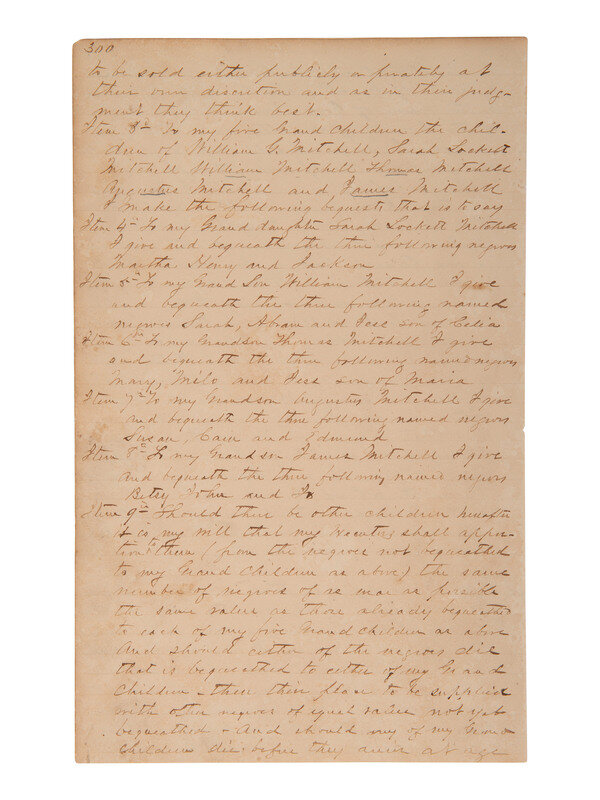 300
to be sold either publicly or privately at
their own discretion and as in their judg-
ment they think best.
Item 3d To my five Grand children the chil-
dren of William G. Mitchell, Sarah Lockett
Mitchell William Mitchell Thomas Mitchell
Augustus Mitchell and James Mitchell
I make the following bequests that is to say
Item 4th To my Grand daughter Sarah Lockett Mitchell
I give and bequeath the three following negroes
Martha Henry and Jackson
Item 5th To my Grand Son William Mitchell I give
and bequeath the three following named
negroes Sarah, Abram and Jess son of Celia
Item 6th To my Grandson Thomas Mitchell I give
and bequeath the three following named negroes
Mary, Milo and Jess son of Maria
Item 7th To my Grandson Augustus Mitchell I give
and bequeath the three following named negroes
Susan, and Edmund
Item 8th To my Grandson James Mitchell I give
and bequeath the three following named negroes
Betsy John and
Item 9th Should there be other children hereafter
it is my will that my Executors shall appor-
tion to them (from the negroes not bequeathed
to my Grand Children as above) the same
number of negroes of as near as possible
the same value as those already bequeathed
to each of my five Grand children as above
And should either of the negroes die
that is bequeathed to either of my Grand
Children then their place to be supplied
with other negroes of equal value not yet
bequeathed - And should any of my Grand
children die before they arrive at age